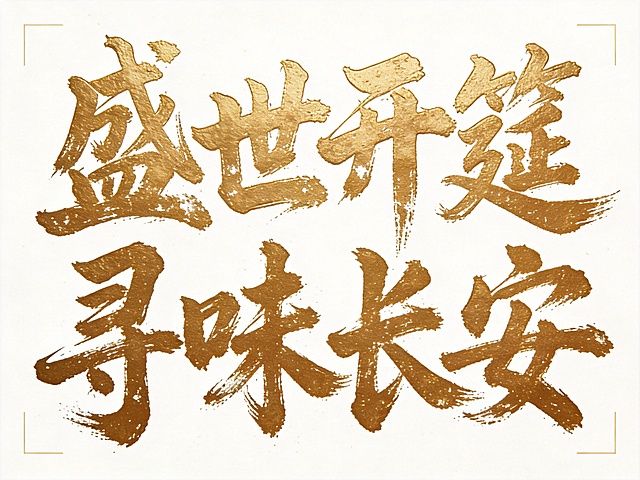 盛世开筵
寻味长安